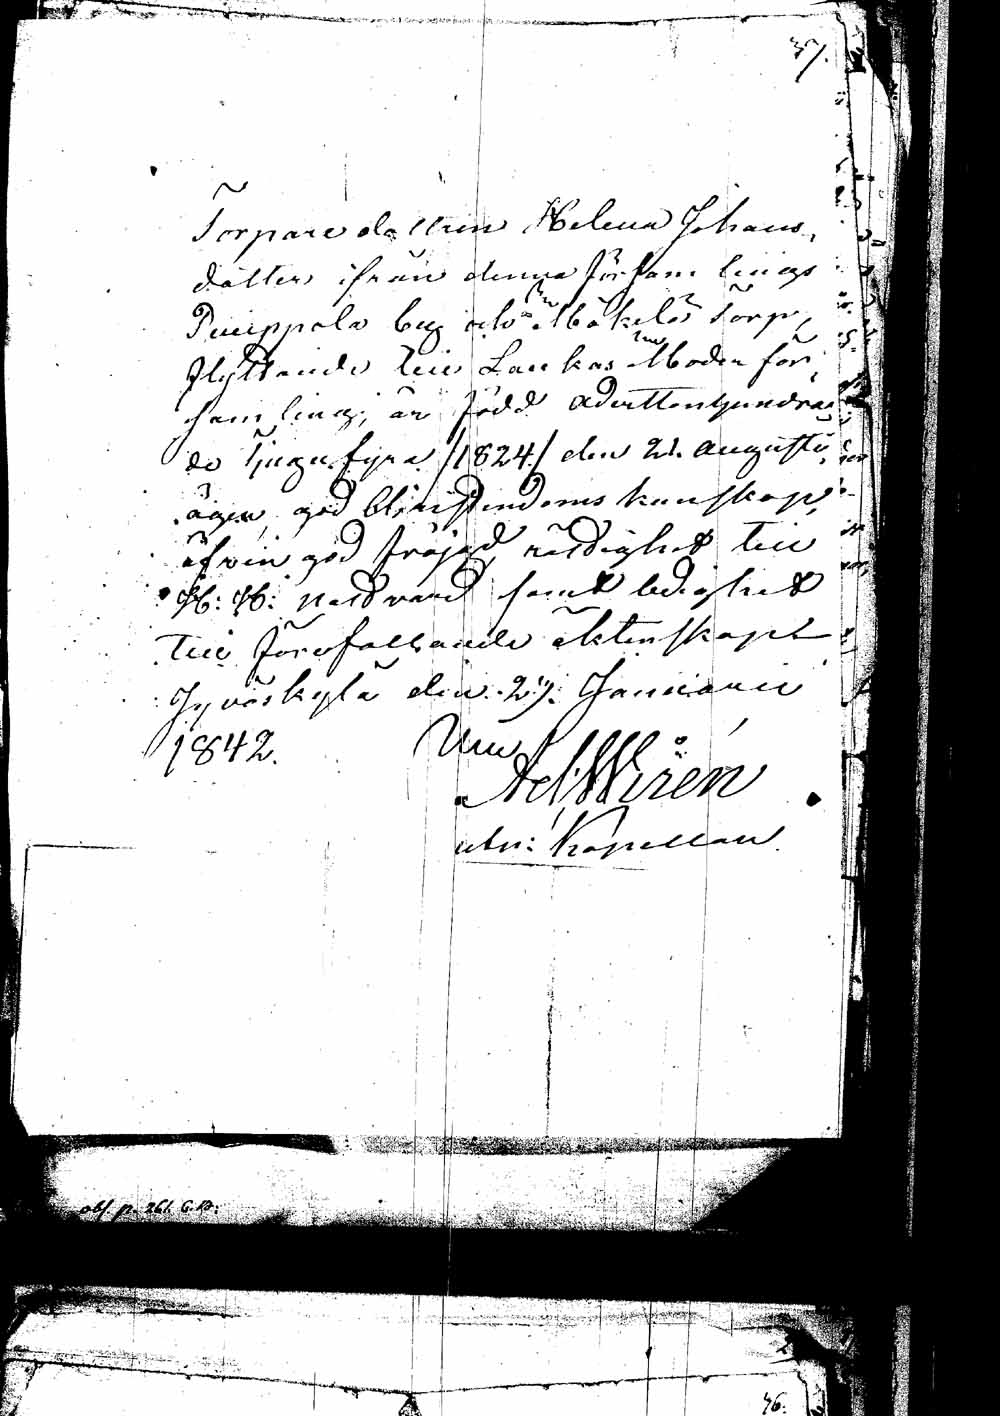 37.
Torpare dottren Helena Johans,
dotter ifrån denna Församlings
Puuppola by och Mäkelä Torp,
flyttande till Laukas Moder för,
samling, är född adertonhundra,
de tjugufyra /1824/ den 21. Augusti,
äger god Christendoms kunskap,
äfven god frejd, rättighet till
H: H: nattvard samt ledighet
till förefallande äktenskap.
Jyväskylä den 27. Januarii
1842.
Ad. Wirén
adj: Kapellan.
obs. p. 261. C.B:
76.